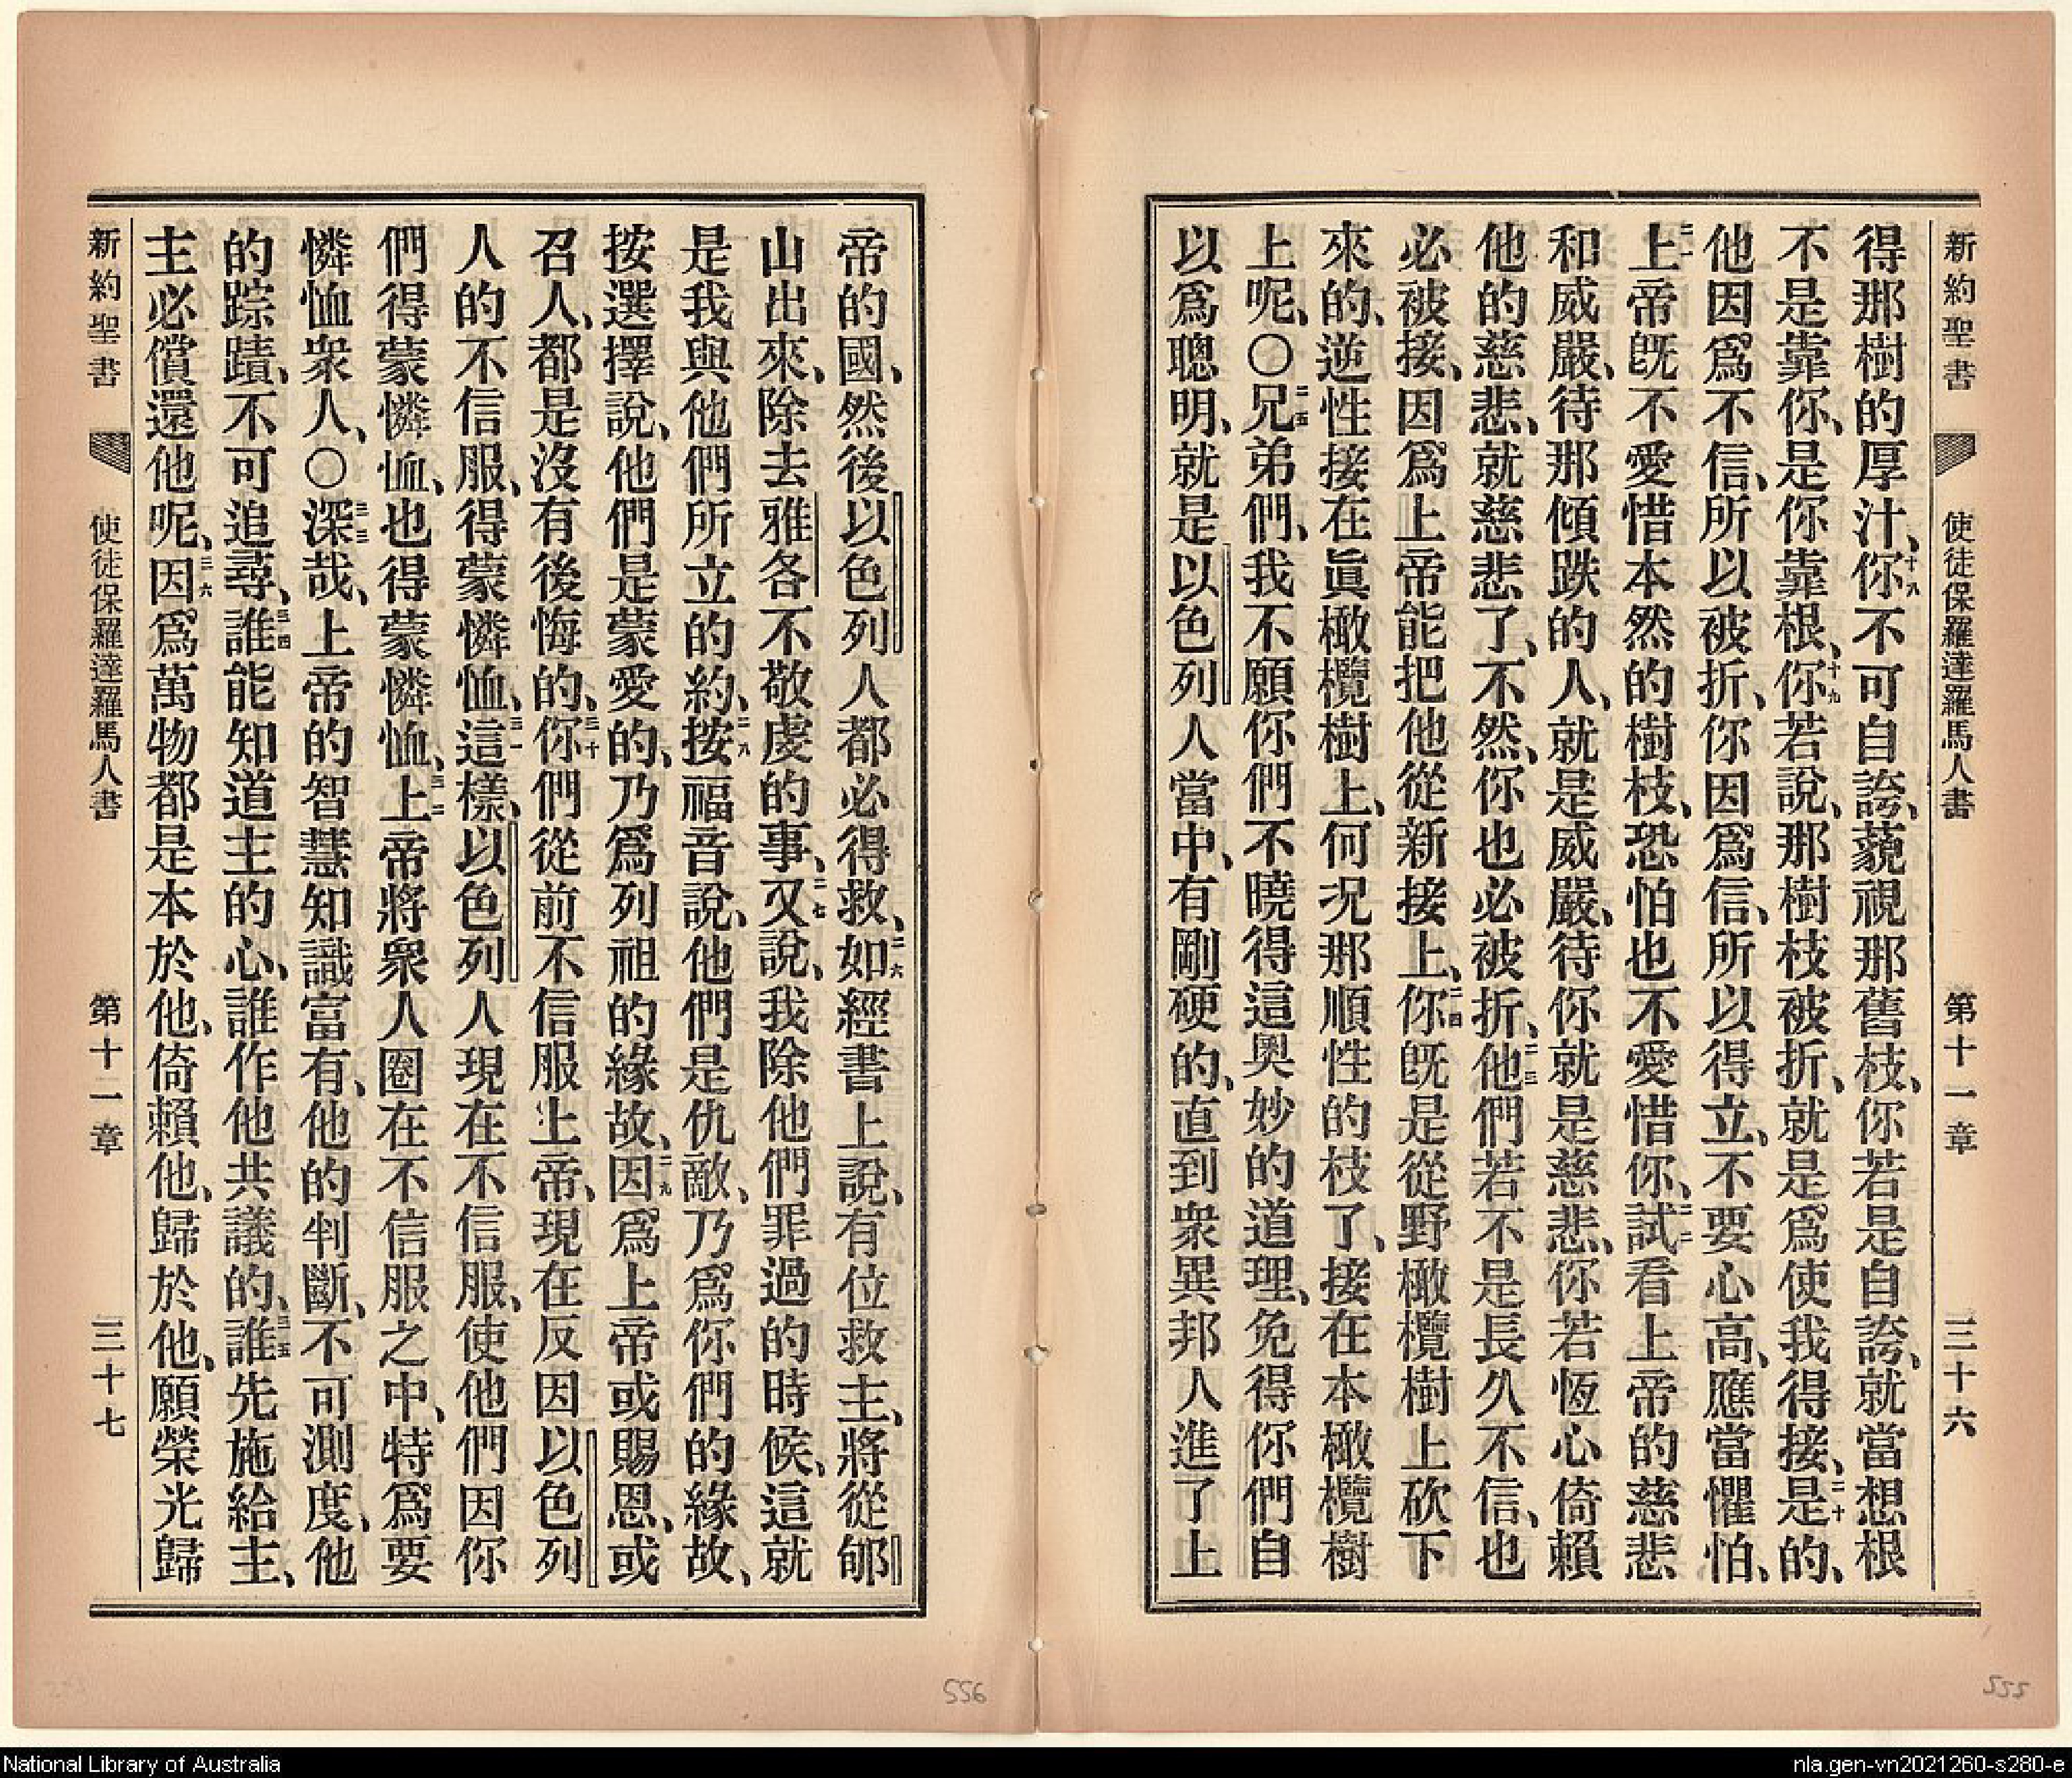 新約聖書 使徒保羅達羅馬人書 第十一章 三十六
得那樹的厚汁、十八你不可自誇、藐視那舊枝、你若是自誇、就當想根
不是靠你、是你靠根、十九你若說、那樹枝被折、就是爲使我得接、二十是的、
他因爲不信、所以被折、你因爲信、所以得立、不要心高、應當懼怕、
二一上帝旣不愛惜本然的樹枝、恐怕也不愛惜你、二二試看上帝的慈悲
和威嚴、待那傾跌的人、就是威嚴、待你就是慈悲、你若恆心倚賴
他的慈悲、就慈悲了、不然、你也必被折、二三他們若不是長久不信、也
必被接、因爲上帝能把他從新接上、二四你旣是從野橄欖樹上砍下
來的、逆性接在眞橄欖樹上、何况那順性的枝了、接在本橄欖樹
上呢、〇二五兄弟們、我不願你們不曉得這奥妙的道理、免得你們自
以爲聰明、就是以色列人當中、有剛硬的、直到衆異邦人進了上
帝的國、然後以色列人都必得救、二六如經書上說、有位救主、將從郇
山出來、除去雅各不敬虔的事、二七又說、我除他們罪過的時候、這就
是我與他們所立的約、二八按福音說、他們是仇敵、乃爲你們的緣故、
按選擇說、他們是蒙愛的、乃爲列祖的緣故、二九因爲上帝或賜恩、或
召人、都是沒有後悔的、三十你們從前不信服上帝、現在反因以色列
人的不信服、得蒙憐恤、三一這樣、以色列人現在不信服、使他們因你
們得蒙憐恤、也得蒙憐恤、三二上帝將衆人圈在不信服之中、特爲要
憐恤衆人、〇三三深哉、上帝的智慧知識富有、他的判斷、不可測度、他
的踪蹟、不可追尋、三四誰能知道主的心、誰作他共議的、三五誰先施給主、
主必償還他呢、三六因爲萬物都是本於他、倚賴他、歸於他、願榮光歸
新約聖書 使徒保羅達羅馬人書 第十一章 三十七
556
555
National Library of Australia
nla.gen-vn2021260-s280-e